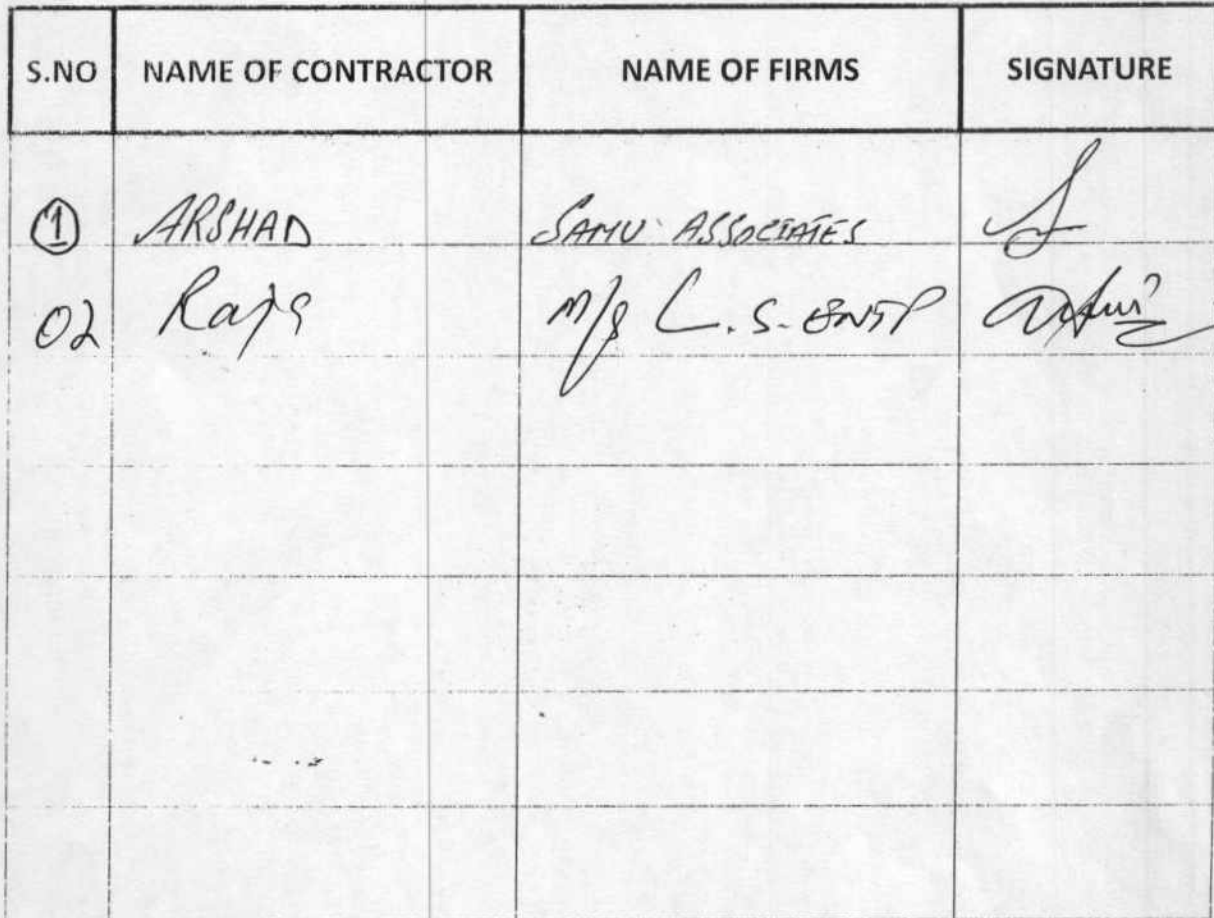 S.NO NAME OF CONTRACTOR NAME OF FIRMS SIGNATURE
1 ARSHAD SAMU ASSOCIATES
02 M/s L.S. ENTP